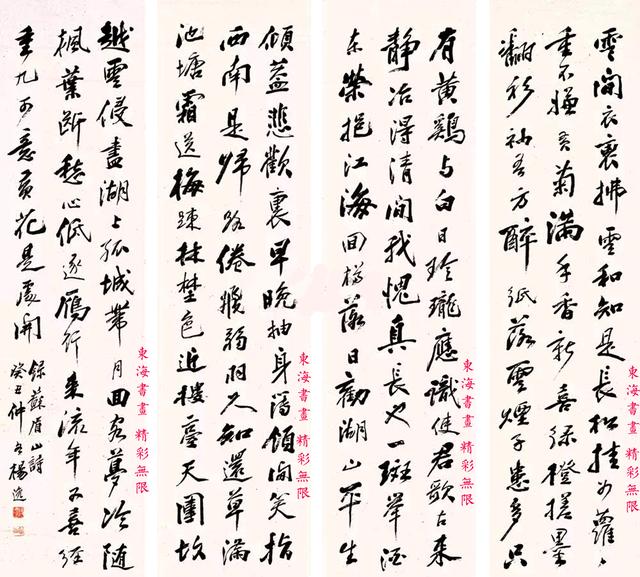 雲間衣裏拂雲和知是長松挂女蘿
重不嫌黃菊滿手香新喜綠橙搓墨
翻衫袖吾方醉紙落雲煙子患多只
有黃鷄與白日玲瓏應識使君歌古來
靜治得清閒我愧真長也一斑舉酒
東榮挹江海回樽落日勸湖山平生
傾蓋悲歡裏早晚抽身簿領間笑指
西南是歸路倦飛弱羽久知還草滿
池塘霜送梅疎林野色近樓臺天圍故
越雲侵盡湖上孤城帶月回客夢冷隨
楓葉斷愁心低逐雁行來流年又喜經
重九可意黃花是處開
錄蘇眉山詩
癸丑仲冬楊逸
東海書畫 精彩無限
東海書畫 精彩無限
東海書畫 精彩無限
東海書畫 精彩無限